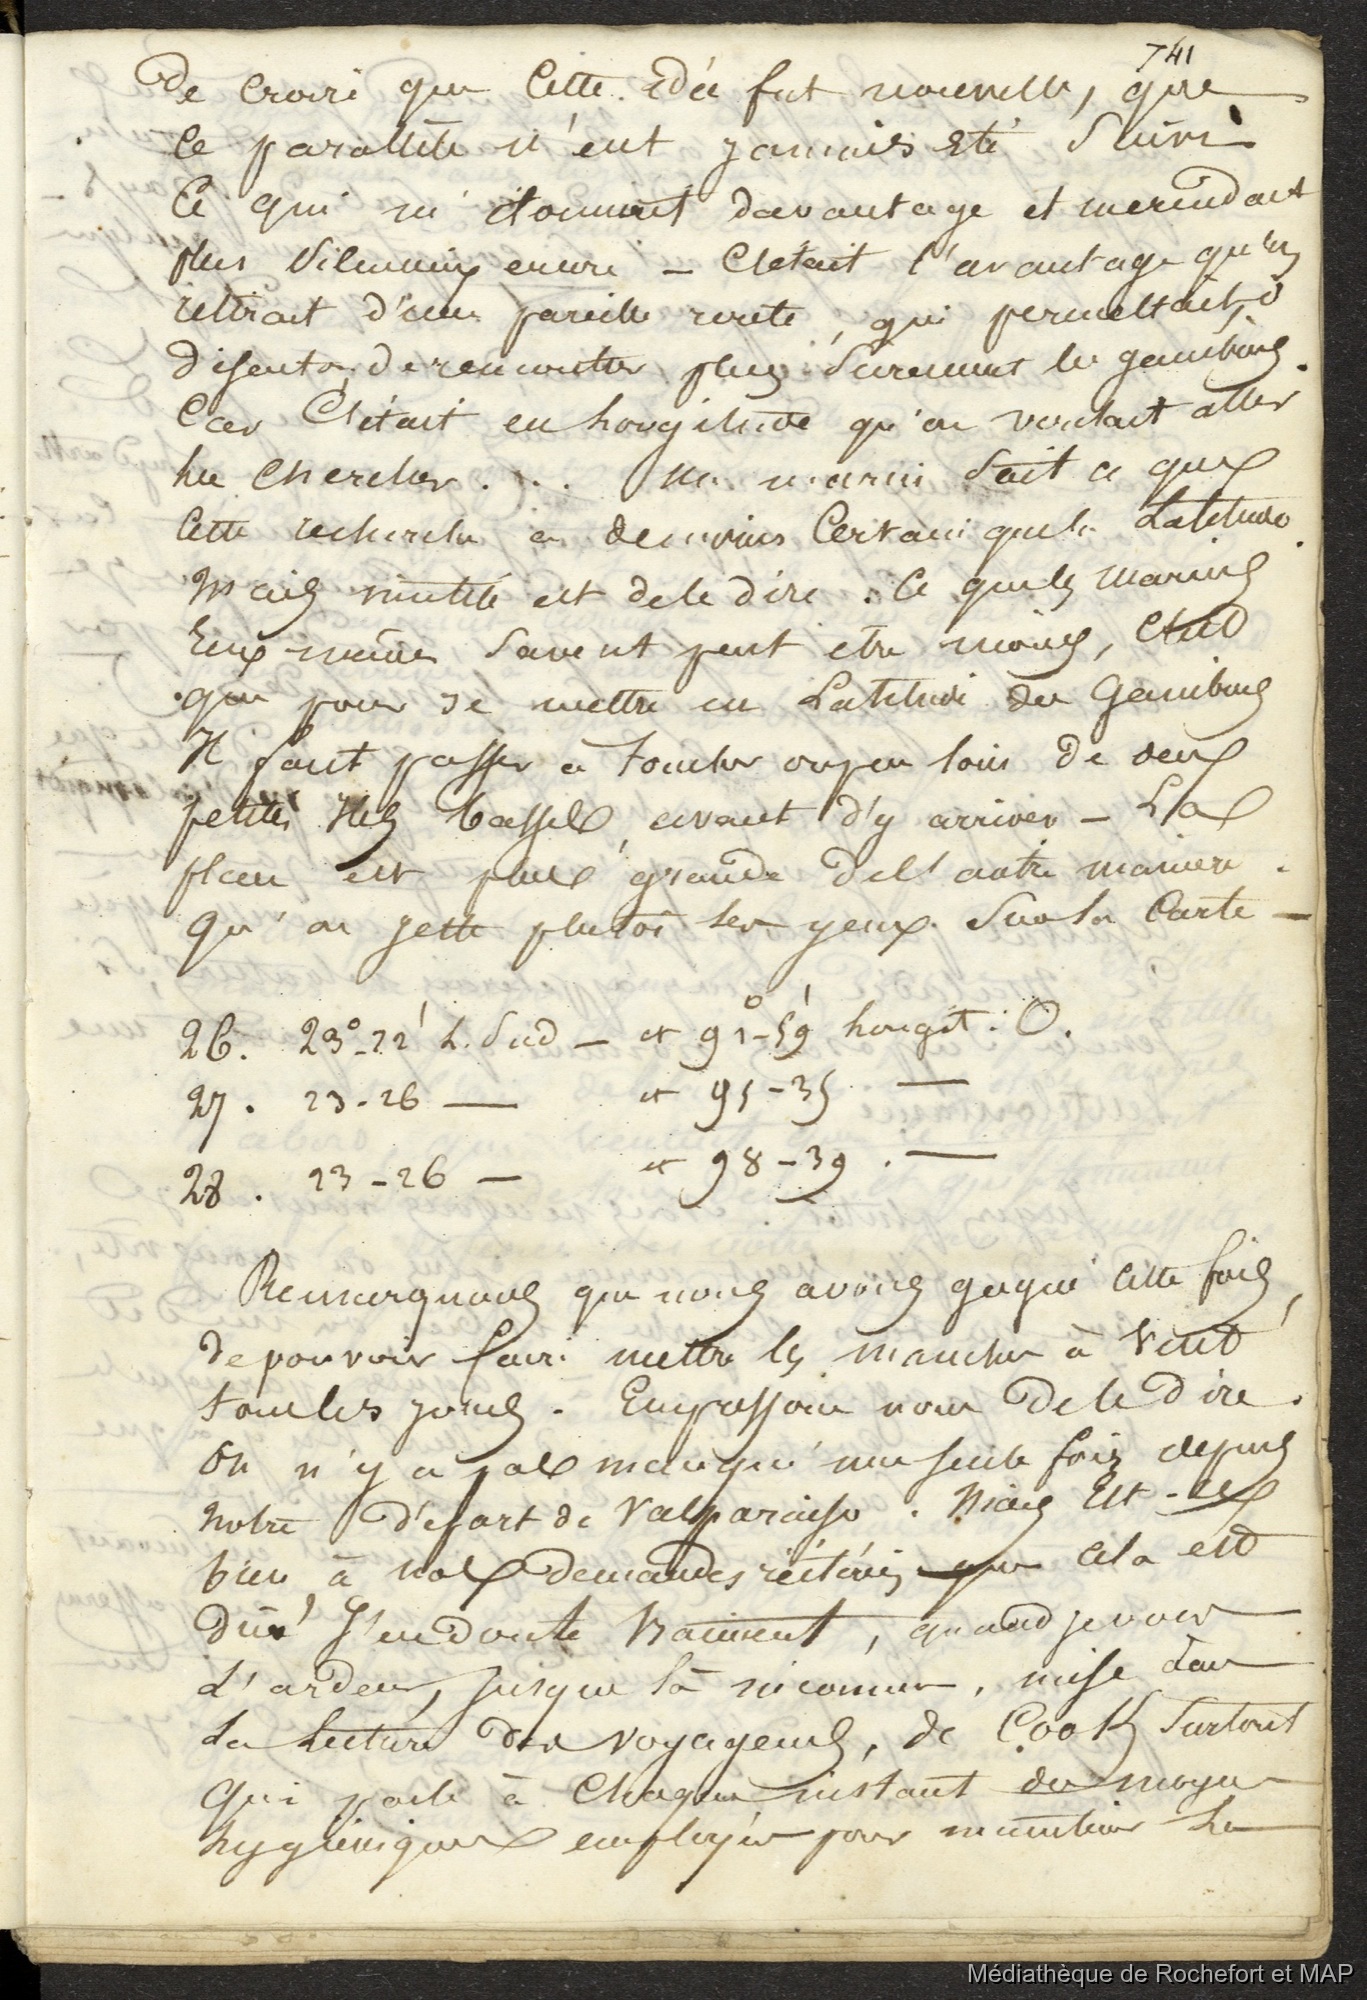 741
De croire que Cette idée fut nouvelle, que
Ce parallèle n'eut jamais été Suivi
Ce qui m'étonnait davantage et me rendait
plus encore – C'était l'avantage qu'on
retirait d'une pareille route, qui permettait,
disent on de rencontrer plus Surement les gambiers.
Car C'était en Longitude qu'on voulait aller
les Chercher . . . Un marin Sait ce que
Cette recherche a de moins Certain que la Latitude.
Mais inutile est de le dire. Ce que les marins
Eux-mêmes Savent peut être moins, C'est
que pour se mettre en Latitude des Gambiers
Il faut passer à toucher ou peu loin de deux
petites Iles basses, avant d'y arriver – La
place est plus grande de l'autre maniere.
Qu'on jette plutôt les yeux Sur la Carte –
26. 23°-22' L. Sud – et 91°-59' Longit: O.
27. 23-26 — et 95-35. —
28. 23-26 — et 98-39. —
Remarquons que nous avons gagné Cette fois,
de pouvoir faire mettre les manches à Vent
tous les jours. Empressons nous De le Dire.
On n'y a pas manqué une seule fois depuis
Notre Départ de Valparaiso. Mais Est-ce
bien à nos demandes réitérées que cela est
Dû? J'en doute Vraiment, quand je vois
L'ardeur, jusque là inconnue, mise dans
La Lecture des voyageurs, de Cook Surtout
Qui parle à Chaque instant des moyens
hygiéniques employés pour maintenir La
Médiathèque de Rochefort et MAP